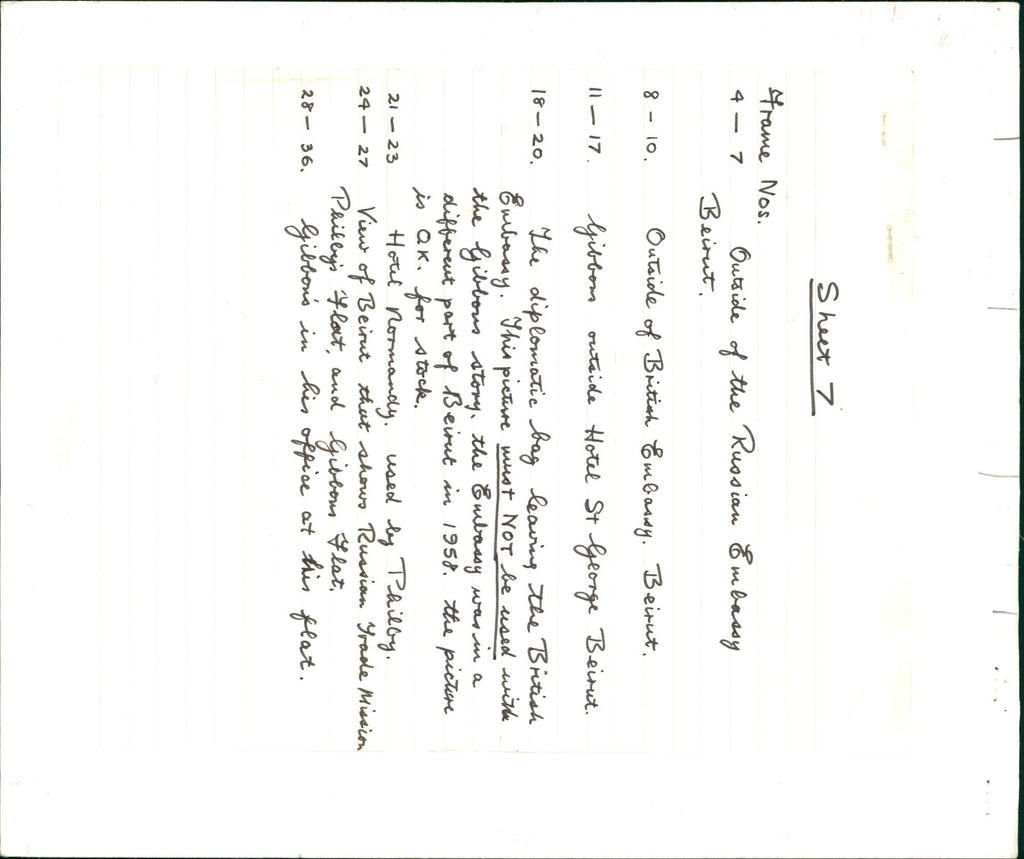 Sheet 7
Frame Nos.
4 – 7 Outside of the Russian Embassy
Beirut.
8 – 10. Outside of British Embassy. Beirut.
11 – 17. Gibbons outside Hotel St George Beirut.
18 – 20. The diplomatic bag leaving the British
Embassy. This picture must NOT be used with
the Gibbons story. the Embassy was in a
different part of Beirut in 1958. the picture
is O.K. for stock.
21 – 23 Hotel Normandy. used by Philby.
24 – 27 View of Beirut that shows Russian Trade Mission
Philby's Flat, and Gibbons Flat.
28 – 36. Gibbons in his office at his flat.